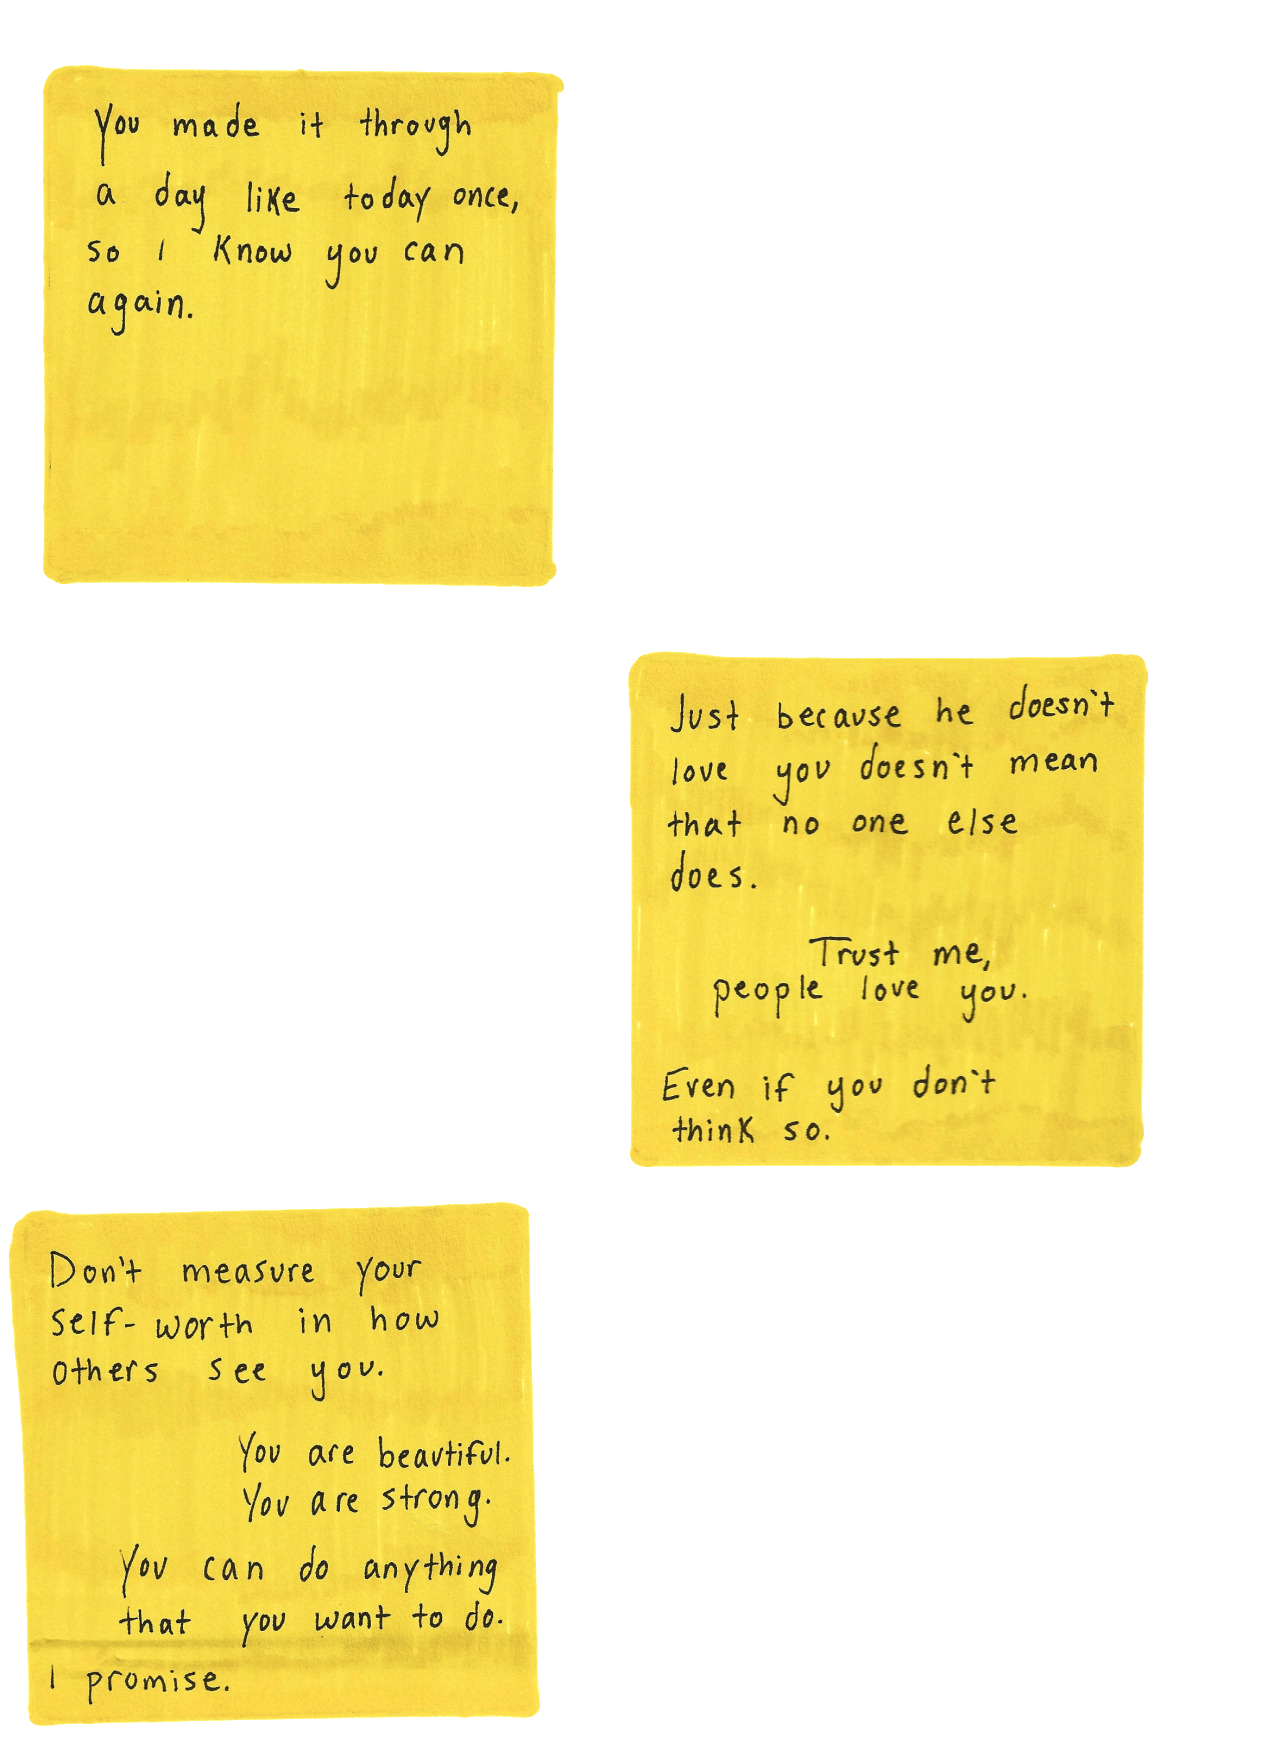 You made it through
a day like today once,
so I know you can
again.
Just because he doesn't
love you doesn't mean
that no one else
does.
Trust me,
people love you.
Even if you don't
think so.
Don't measure your
self-worth in how
others see you.
You are beautiful.
You are strong.
You can do anything
that you want to do.
I promise.